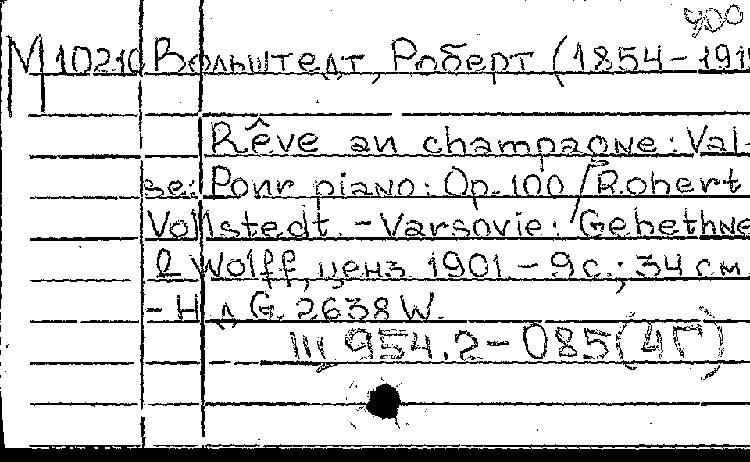 900
М 10210 Вольштедт, Роберт (1854-191
Rêve au champagne: Val-
se: Pour piano: Op. 100 / Robert
Vollstedt. - Varsovie: Gebethne
& Wolff, ценз. 1901. - 9 с.; 34 см
- Н. д. G. 2638 W.
Ш 954.2-085(4Г)